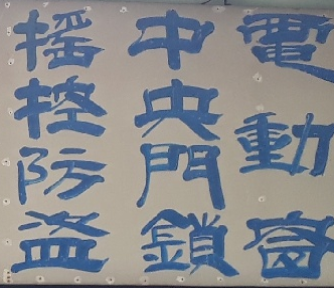 電動窗
中央門鎖
搖控防盜